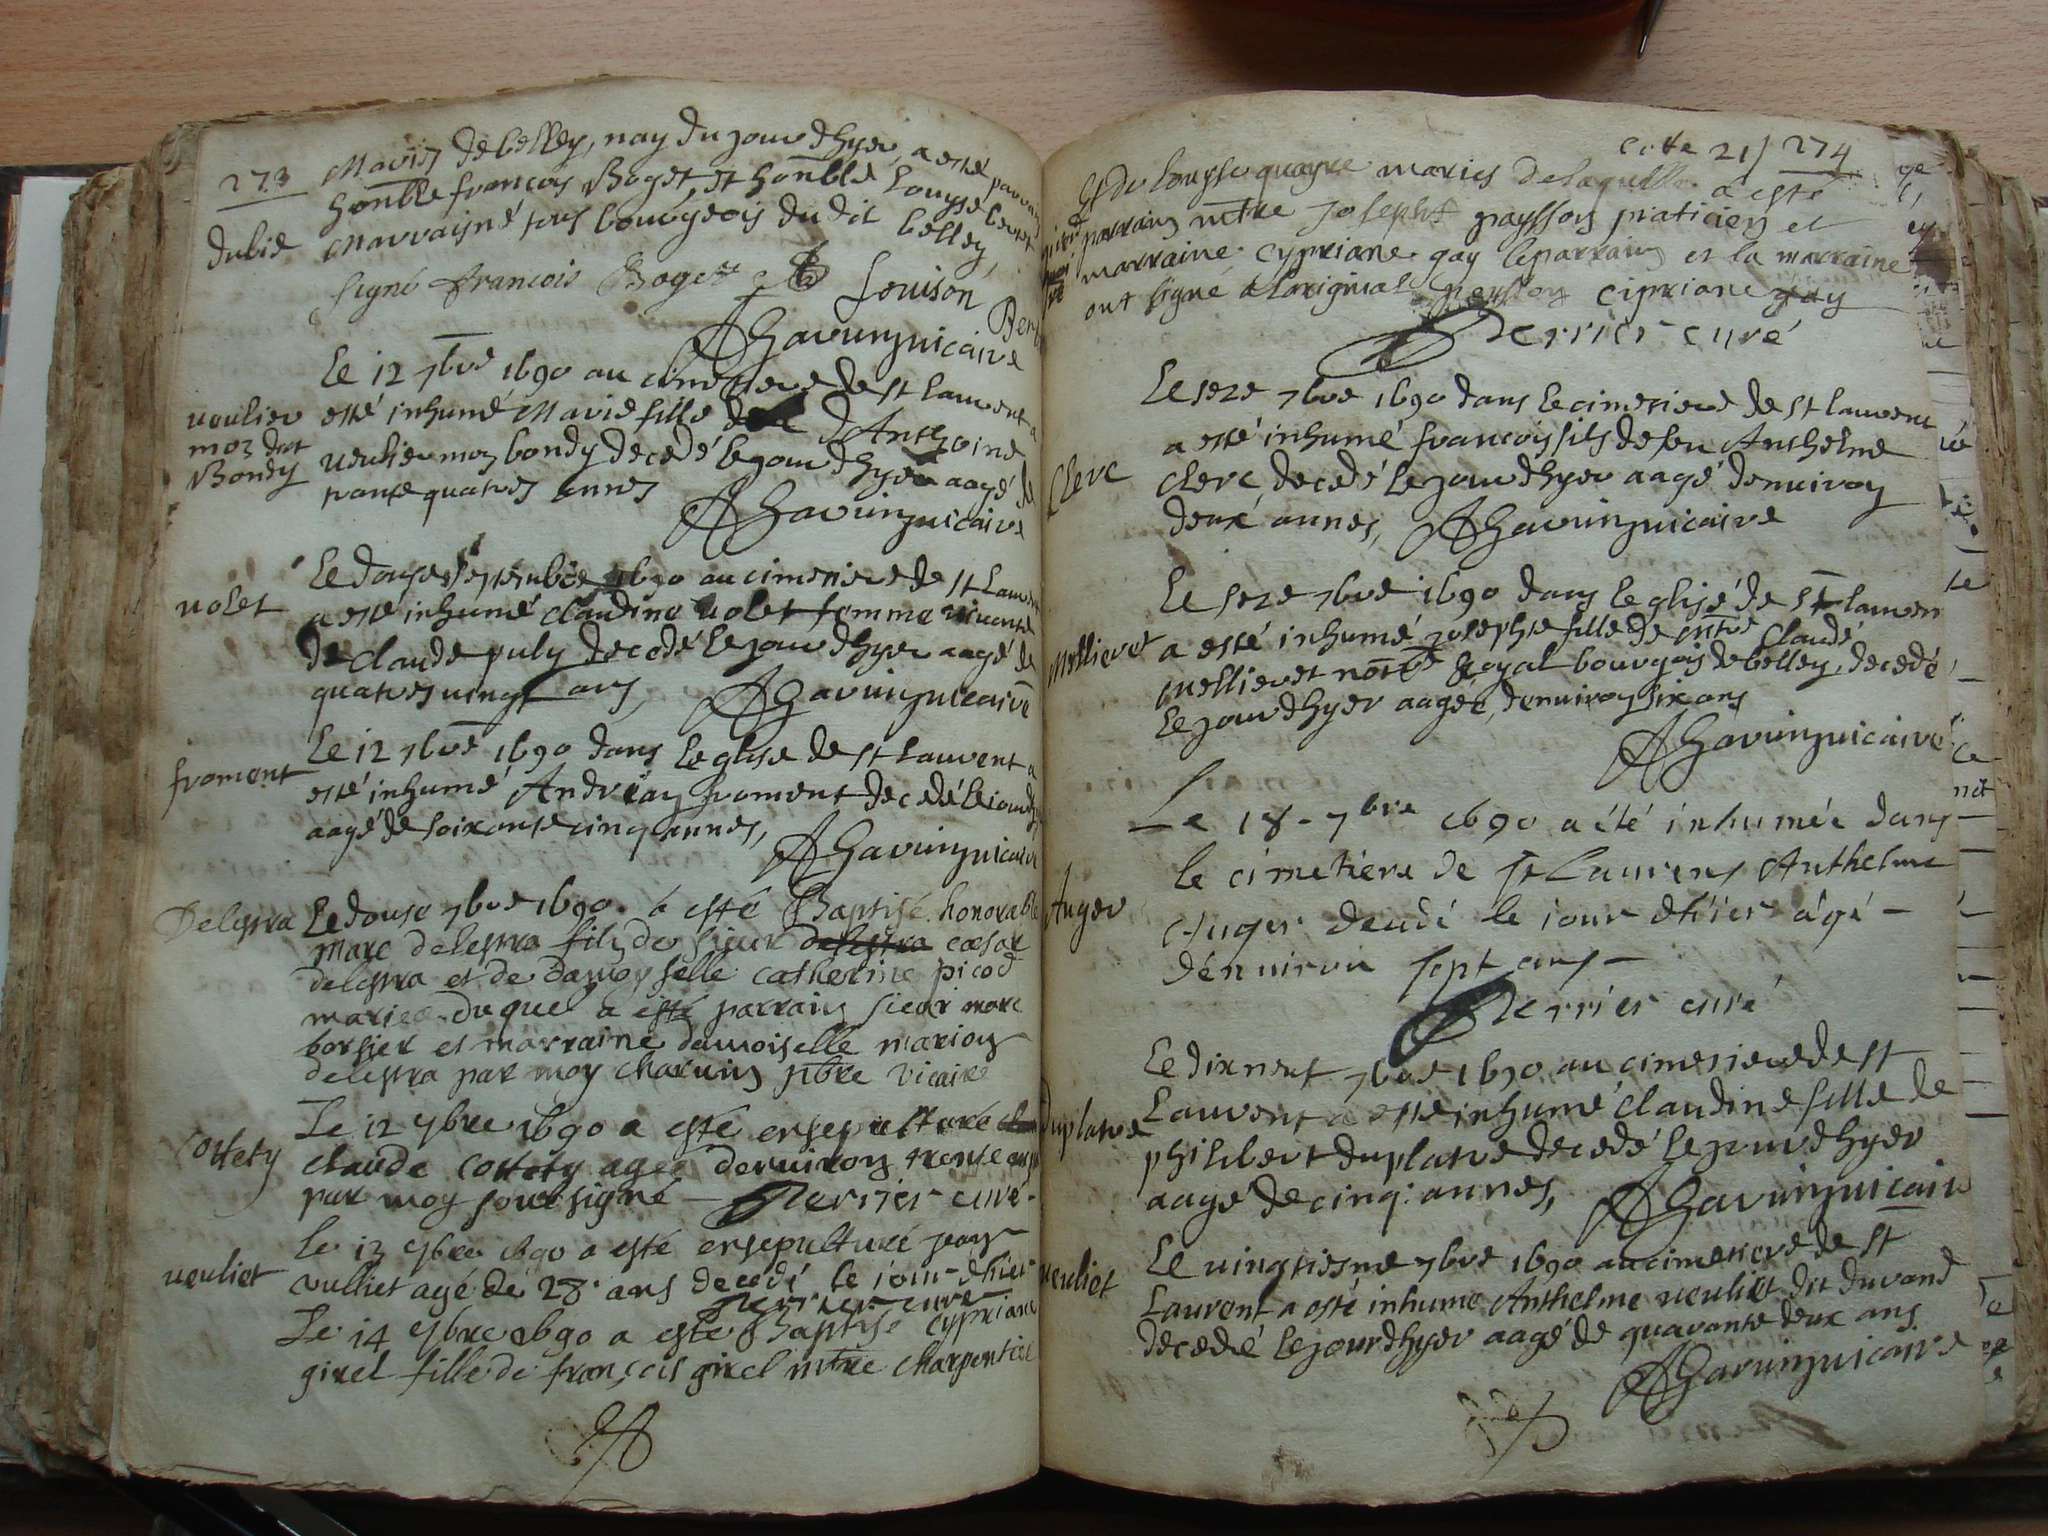 273
mariés de belley, nay du jour dhyer, a esté parrain
honble francois Boget, et honble Louyse benet
dubie
marrayne tous bourgeois du dit belley,
signé francois Boget
Louison
Ben
Charvin vicaire
Le 12 7bre 1690 au cimetiere de st Laurent a
veulier
esté inhumé Marie fille d'Anthoine
moz dit
Bondy
veulier moz bondy decedé le jour dhyer aagé de
trante quatres annes
Charvin vicaire
Le douse septembre 1690 au cimetiere de st Laurent
volet
a esté inhumé claudine volet femme vivante
de claude puly decedé le jour dhyer aagé de
quatres vingt ans, Charvin vicaire
Le 12 7bre 1690 dans leglise de st Laurent a
froment
esté inhumé Andrian froment decedé le jourdhy
aagé de soixante cinq annes,
Charvin vicaire
Delestra
Le douse 7bre 1690 a esté Baptisé honorable
marc delestra fils de sieur delestra cæsar
delestra et de damoyselle catherine picod
mariés duquel a esté parrain sieur marc
borsier et marraine damoiselle marion
delestra par moy charvin pbre vicaire
Le 12 7bre 1690 a esté ensepulturé
cottety
claude cottety agee denviron trente ans
par moy soubsigné - Perrier curé -
Le 13 7bre 1690 a esté ensepulturé jean
veuliet
vulliet agé de 28 ans decedé le jour dhier
Perrier curé
Le 14 7bre 1690 a esté Baptisé cypriane
girel fille de françois girel mtre charpentier
Cotte 21 / 274
et de Louyse quayre mariés de laquelle a esté
parrain mtre Joseph payssoy praticien et
marraine cypriane gay le parrain et la marraine
ont signé a loriginal peysson cipriane gay
Perrier curé
Le seze 7bre 1690 dans le cimetiere de st Laurent
a esté inhumé francois fils de feu Anthelme
Clerc
clerc, decedé le jour dhyer aagé denviron
deux annes, Charvin vicaire
Le seze 7bre 1690 dans leglise de st Lauren
mellieret
a esté inhumé josephte fille de mtre Claude
mellieret notre Royal bourgois de belley, decedé
le jour dhyer aagée denviron six ans
Charvin vicaire
Le 18 - 7bre 1690 a été inhumée dans
le cimetiere de st Laurens Anthelme
Auger
Auger decedé le jour dhier agé -
d'environ sept ans -
Perrier curé
Le dix neuf 7bre 1690 au cimetiere de st
duplatre
Laurent a esté inhumé claudine fille de
philibert duplatre decedé le jour dhyer
aagé de cinq: annes, Charvin vicair
Le vingtiesme 7bre 1690 au cimetiere de st
veuliet
Laurent, a esté inhumé Anthelme veuliet dit durand
decedé le jour dhyer aagé de quarante deux ans
Charvin vicaire